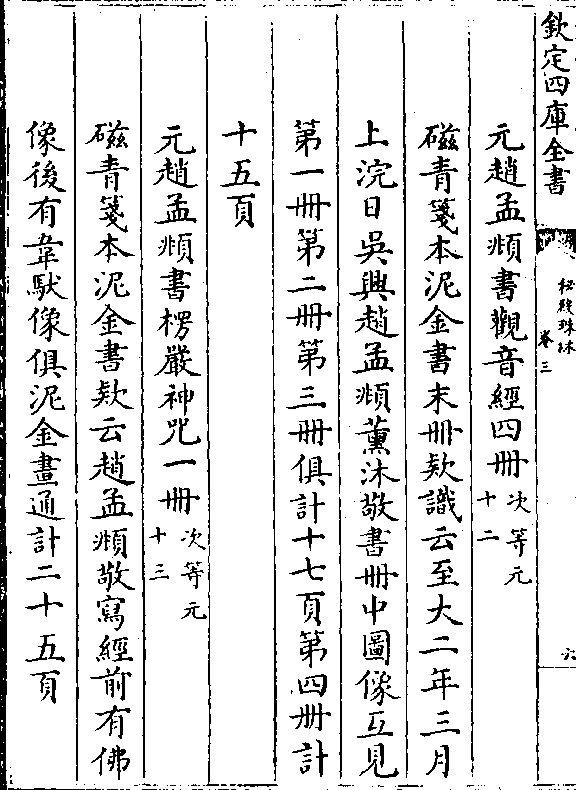 欽定四庫全書
秘殿珠林
卷三
六
元趙孟頫書觀音經四冊次等元十二
磁青箋本泥金書末冊欵識云至大二年三月
上浣日吳興趙孟頫薰沐敬書冊中圖像互見
第一冊第二冊第三冊俱計十七頁第四冊計
十五頁
元趙孟頫書楞嚴神咒一冊次等元十三
磁青箋本泥金書欵云趙孟頫敬寫經前有佛
像後有韋馱像俱泥金畫通計二十五頁